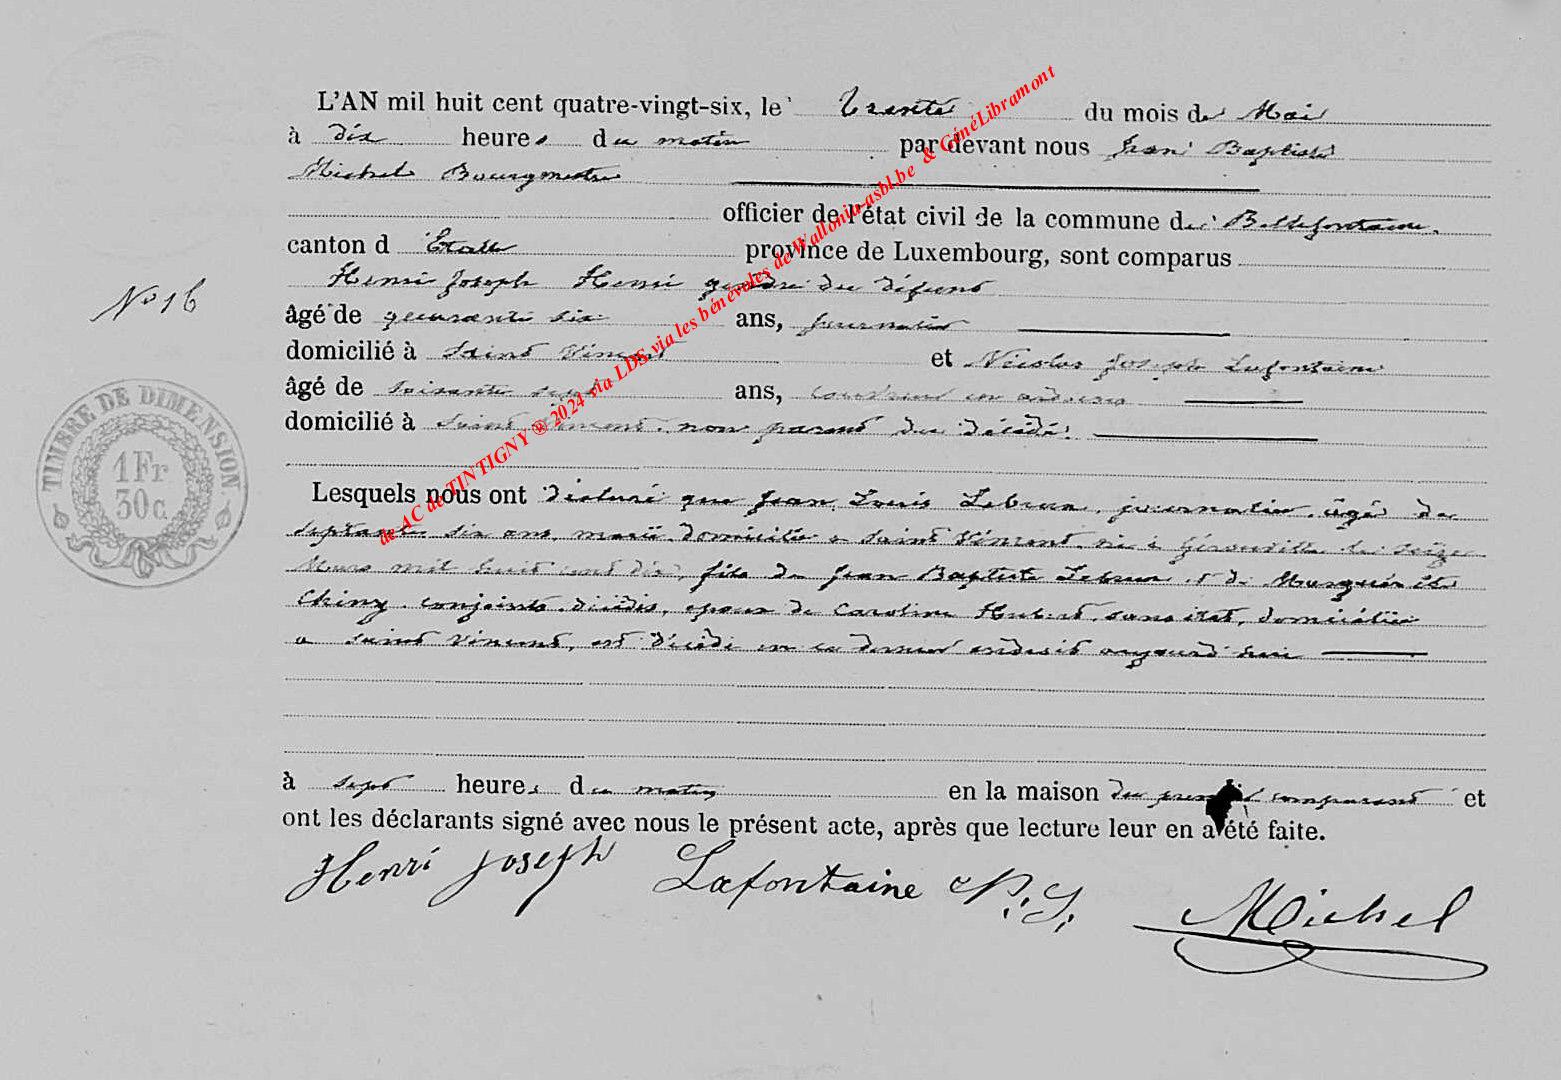 L'AN mil huit cent quatre-vingt-six, le trente du mois de Mai
à dix heures du matin par devant nous Jean Baptiste
Michel Bourgmestre
officier de l'état civil de la commune de Bellefontaine,
canton d Etalle province de Luxembourg, sont comparus
Henri Joseph Henri gendre du défunt
N° 16
âgé de quarante six ans, journalier
domicilié à Saint Vincent et Nicolas Joseph Lafontaine
âgé de soixante sept ans, couvreur en ardoises
domicilié à Saint Vincent, non parent du décédé.
TIMBRE DE DIMENSION
1 Fr
30 c.
Lesquels nous ont déclaré que Jean Louis Lebrun, journalier, âgé de
septante six ans, marié domicilié à Saint Vincent, né à Gérouville le seize
Mars mil huit cent dix, fils de Jean Baptiste Lebrun et de Marguerite
Chiny, conjoints décédés, époux de Caroline Hubert, sans état, domiciliée
à Saint Vincent, est décédé en ce dernier endroit aujourd'hui
à sept heures du matin en la maison du premier comparant et
ont les déclarants signé avec nous le présent acte, après que lecture leur en a été faite.
Henri Joseph Lafontaine N. J. Michel
de AC de TINTIGNY ® 2024 via LDS via les bénévoles de Wallonia-asbl.be & GénéLibramont